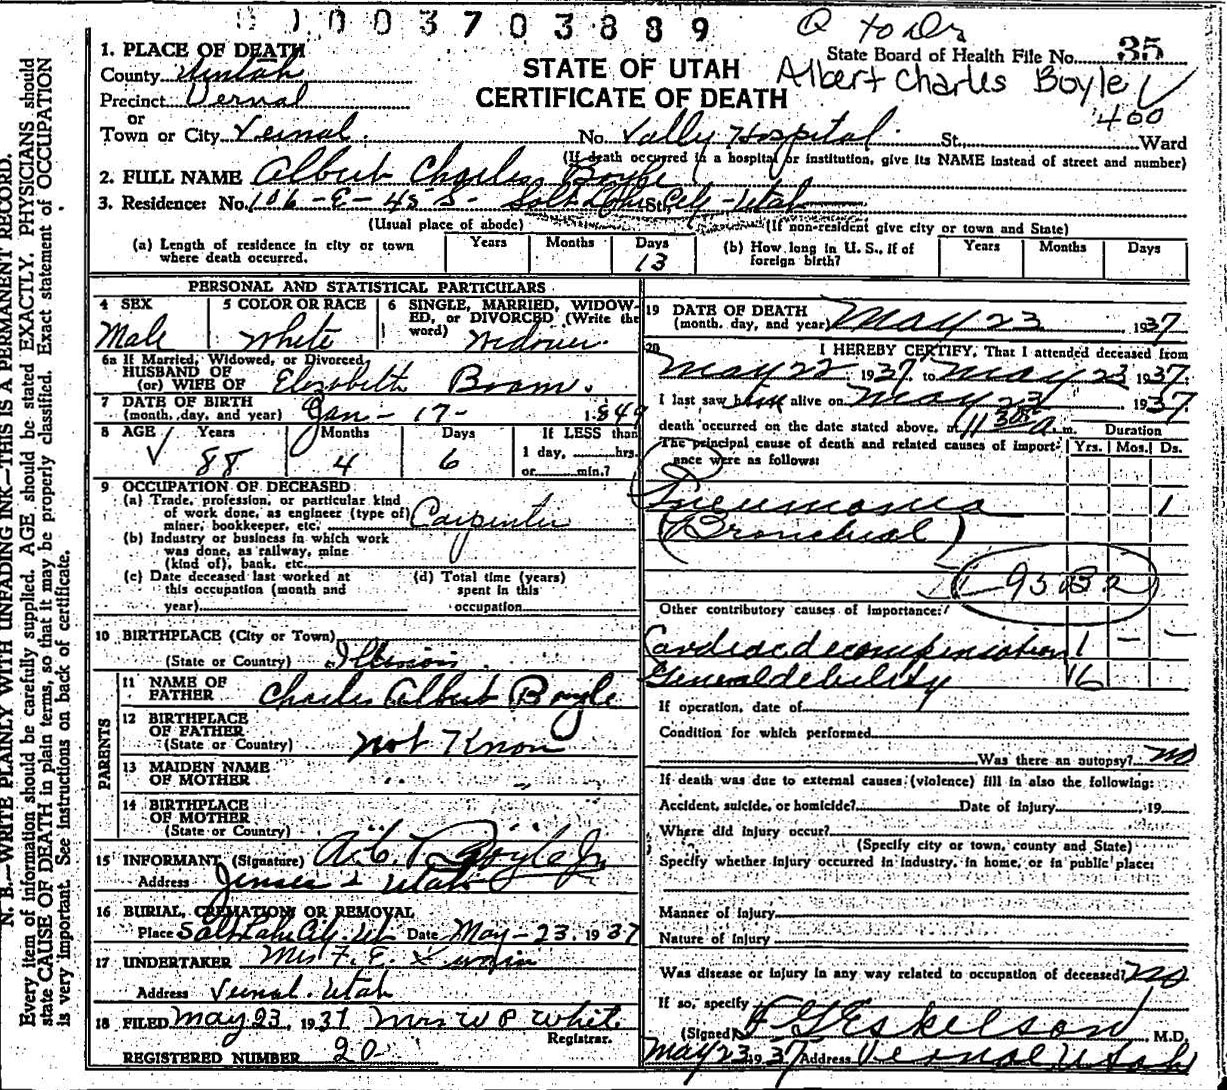 01003703889
Q to Drs
State Board of Health File No. 35
Albert Charles Boyle
400
STATE OF UTAH
CERTIFICATE OF DEATH
1. PLACE OF DEATH
County Uintah
Precinct Vernal
or
Town or City Vernal. No. Vally Hospital. St. Ward
(If death occurred in a hospital or institution, give its NAME instead of street and number)
2. FULL NAME Albert Charles Boyle
3. Residence: No. 106-E-45 S- Salt Lake St. City-Utah
(Usual place of abode) (If non-resident give city or town and State)
(a) Length of residence in city or town where death occurred. Years Months Days 13
(b) How long in U. S., if of foreign birth? Years Months Days
PERSONAL AND STATISTICAL PARTICULARS
4 SEX Male
5 COLOR OR RACE White
6 SINGLE, MARRIED, WIDOWED, or DIVORCED (Write the word) Widower.
6a If Married, Widowed, or Divorced,
HUSBAND OF
(or) WIFE OF Elizabeth Boam.
7 DATE OF BIRTH
(month, day, and year) Jan-17- 1849
8 AGE Years 88 Months 4 Days 6
If LESS than
1 day, hrs.
or min.?
9 OCCUPATION OF DECEASED
(a) Trade, profession, or particular kind
of work done, as engineer (type of)
miner, bookkeeper, etc. Carpenter
(b) Industry or business in which work
was done, as railway, mine
(kind of), bank, etc.
(c) Date deceased last worked at
this occupation (month and
year)
(d) Total time (years)
spent in this
occupation
10 BIRTHPLACE (City or Town)
(State or Country) Illinois.
PARENTS
11 NAME OF
FATHER Charles Albert Boyle
12 BIRTHPLACE
OF FATHER
(State or Country) Not Know
13 MAIDEN NAME
OF MOTHER " "
14 BIRTHPLACE
OF MOTHER
(State or Country) " "
15 INFORMANT (Signature) A.C. Boyle Jr
Address Jensen Utah
16 BURIAL, CREMATION, OR REMOVAL
Place Salt Lake City. Ut. Date May-23. 1937
17 UNDERTAKER Mrs F. E.
Address Vernal. Utah
18 FILED May 23, 1937 Mrs W P White.
Registrar.
REGISTERED NUMBER 20
19 DATE OF DEATH
(month, day, and year) May 23 1937
20 I HEREBY CERTIFY, That I attended deceased from
May 22 1937. to May 23 1937.
I last saw him alive on May 23 1937
death occurred on the date stated above, at 11 30 a. m. Duration
The principal cause of death and related causes of importance were as follows: Yrs. Mos. Ds.
Pneumonia 1
(Bronchial)
Other contributory causes of importance:
Cardiac decompensation 1 - -
General debility 16
If operation, date of
Condition for which performed
Was there an autopsy? no
If death was due to external causes (violence) fill in also the following:
Accident, suicide, or homicide? Date of Injury 19
Where did injury occur?
(Specify city or town, county and State)
Specify whether injury occurred in industry, in home, or in public place:
Manner of Injury
Nature of Injury
Was disease or injury in any way related to occupation of deceased? no
If so, specify
(Signed) F G Eskelson, M.D.
May 23 1937 Address Vernal Utah
N. B.—WRITE PLAINLY WITH UNFADING INK—THIS IS A PERMANENT RECORD.
Every item of information should be carefully supplied. AGE should be stated EXACTLY. PHYSICIANS should
state CAUSE OF DEATH in plain terms, so that it may be properly classified. Exact statement of OCCUPATION
is very important. See instructions on back of certificate.